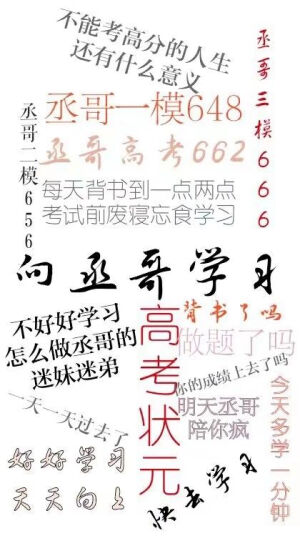 不能考高分的人生
还有什么意义
丞哥三模666
丞哥一模648
丞哥二模656
丞哥高考662
每天背书到一点两点
考试前废寝忘食学习
向丞哥学习
不好好学习
怎么做丞哥的
迷妹迷弟
高考状元
背书了吗
做题了吗
你的成绩上去了吗
明天丞哥
陪你疯
今天多学一分钟
一天一天过去了
好好学习
天天向上
快去学习